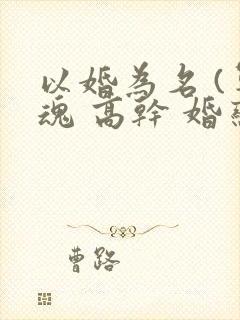 以婚為名(
魂 高幹 婚
曹路